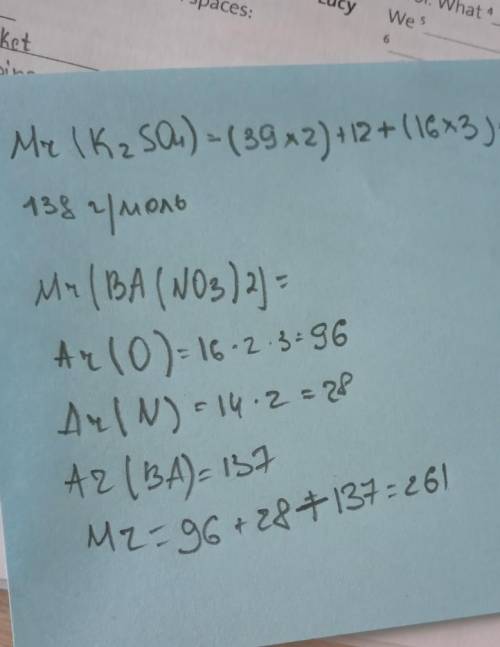 spaces:
ucy
What 4
We 5
6
ket
Mr (K2SO4) = (39×2)+12+(16×3)=
138 г/моль
Mr(BA(NO3)2)=
Ar(O)=16·2·3=96
Ar(N)=14·2=28
Ar(BA)=137
Mr=96+28+137=261